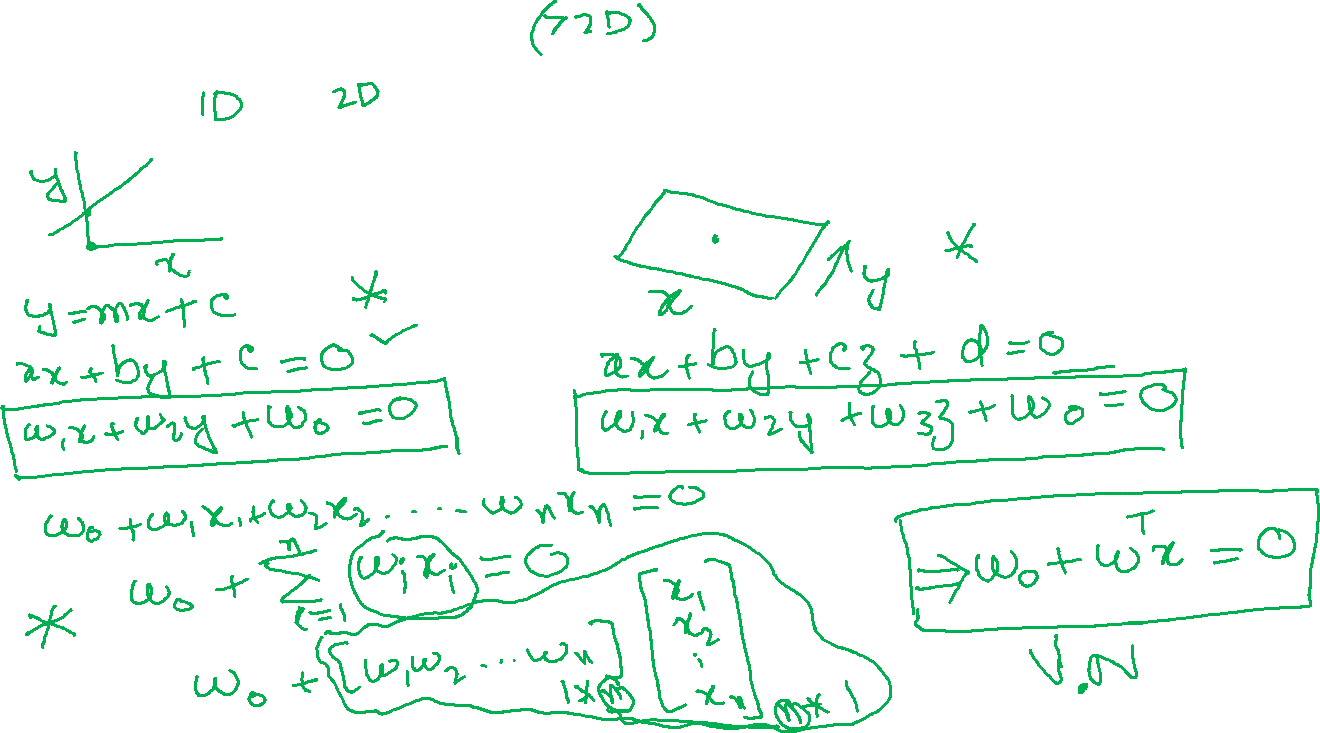 (>2D)
1D 2D
y
x
y = mx + c *
ax + by + c = 0 ✓
w₁x + w₂y + w₀ = 0
x y *
ax + by + cz + d = 0
w₁x + w₂y + w₃z + w₀ = 0
w₀ + w₁x₁ + w₂x₂ ..... wₙxₙ = 0
w₀ + ∑ⁿᵢ₌₁ wᵢxᵢ = 0
* w₀ + [w₁ w₂ ... wₙ] 1×n [x₁ x₂ : xₙ] n*1
⇒ w₀ + wᵀx = 0
V.N